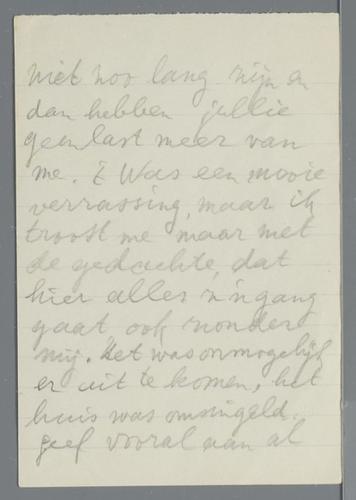 niet zoo lang zijn en
dan hebben jullie
geen last meer van
me. 't Was een mooie
verrassing, maar ik
troost me maar met
de gedachte, dat
hier alles z'n gang
gaat ook zonder
mij. Het was onmogelijk
er uit te komen, het
huis was omsingeld.
geef vooral aan al